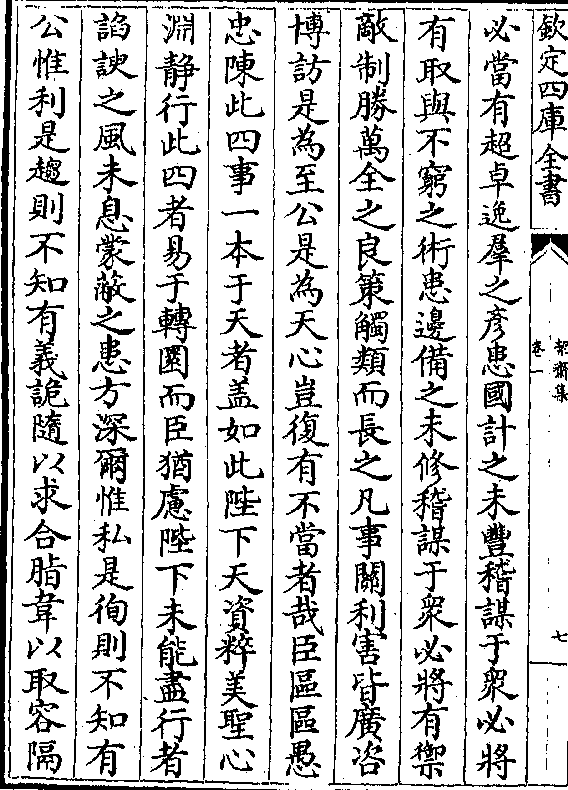 欽定四庫全書
絜齋集
卷一
七
必當有超卓逸羣之彦患國計之未豐稽謀于衆必將
有取與不窮之術患邊備之未修稽謀于衆必將有禦
敵制勝萬全之良策觸類而長之凡事關利害皆廣咨
博訪是為至公是為天心豈復有不當者哉臣區區愚
忠陳此四事一本于天者盖如此陛下天資粹美聖心
淵静行此四者易于轉圜而臣猶慮陛下未能盡行者
諂諛之風未息蒙蔽之患方深爾惟私是徇則不知有
公惟利是趨則不知有義詭隨以求合脂韋以取容隔